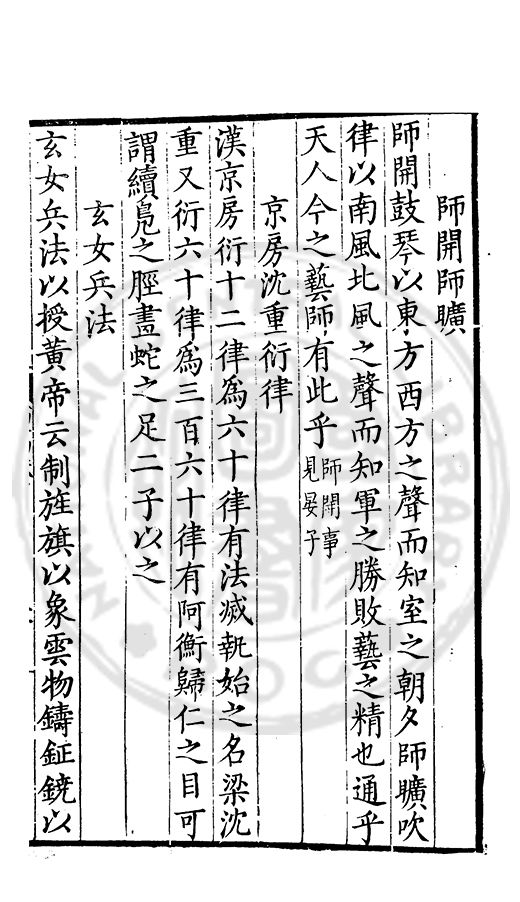 師開師曠
師開鼓琴以東方西方之聲而知室之朝夕師曠吹
律以南風北風之聲而知軍之勝敗藝之精也通乎
天人今之藝師有此乎師開事見晏子
京房沈重衍律
漢京房衍十二律為六十律有法滅執始之名梁沈
重又衍六十律為三百六十律有阿衡歸仁之目可
謂續鳧之脛畫蛇之足二子以之
玄女兵法
玄女兵法以授黃帝云制旌旗以象雲物鑄鉦鐃以